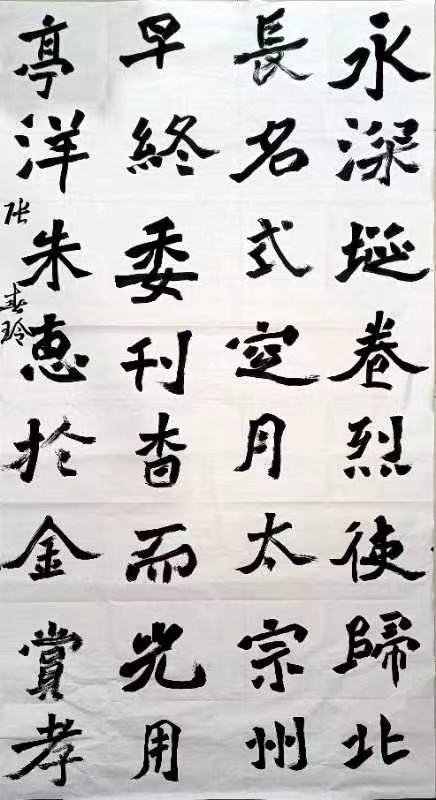 永深埏卷烈使歸北
長名式定月太宗州
早終委刊杳而光用
亭洋朱恵於金賞孝
张春玲